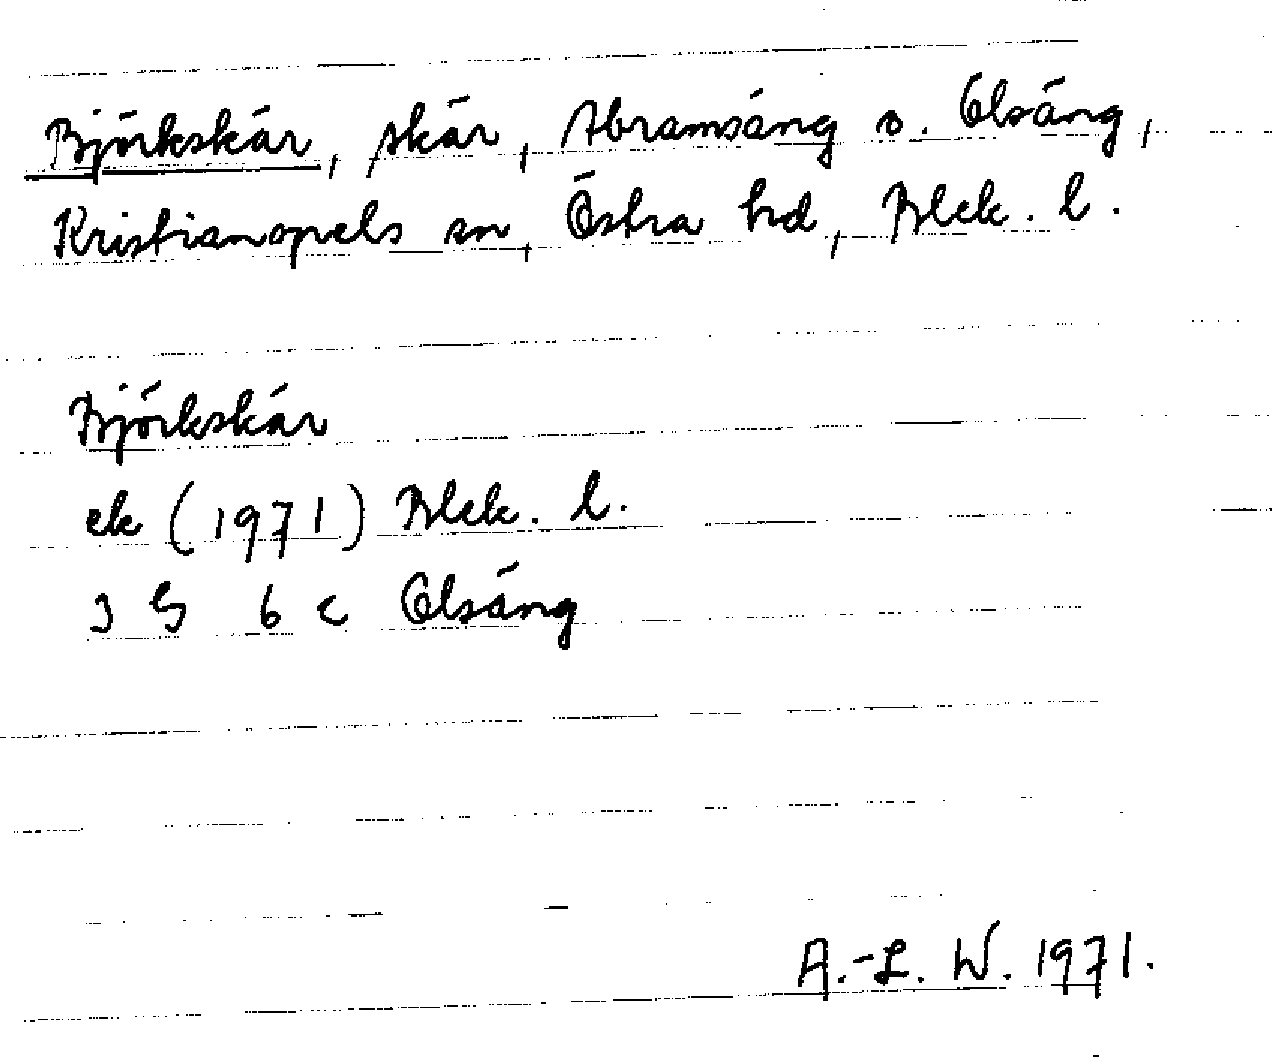 Björkskär, skär, Abramsäng o. Olsäng,
Kristianopels sn, Östra hd, Blek. l.
Björkskär
ek (1971) Blek. l.
3 G 6 c Olsäng
A.-L. W. 1971.